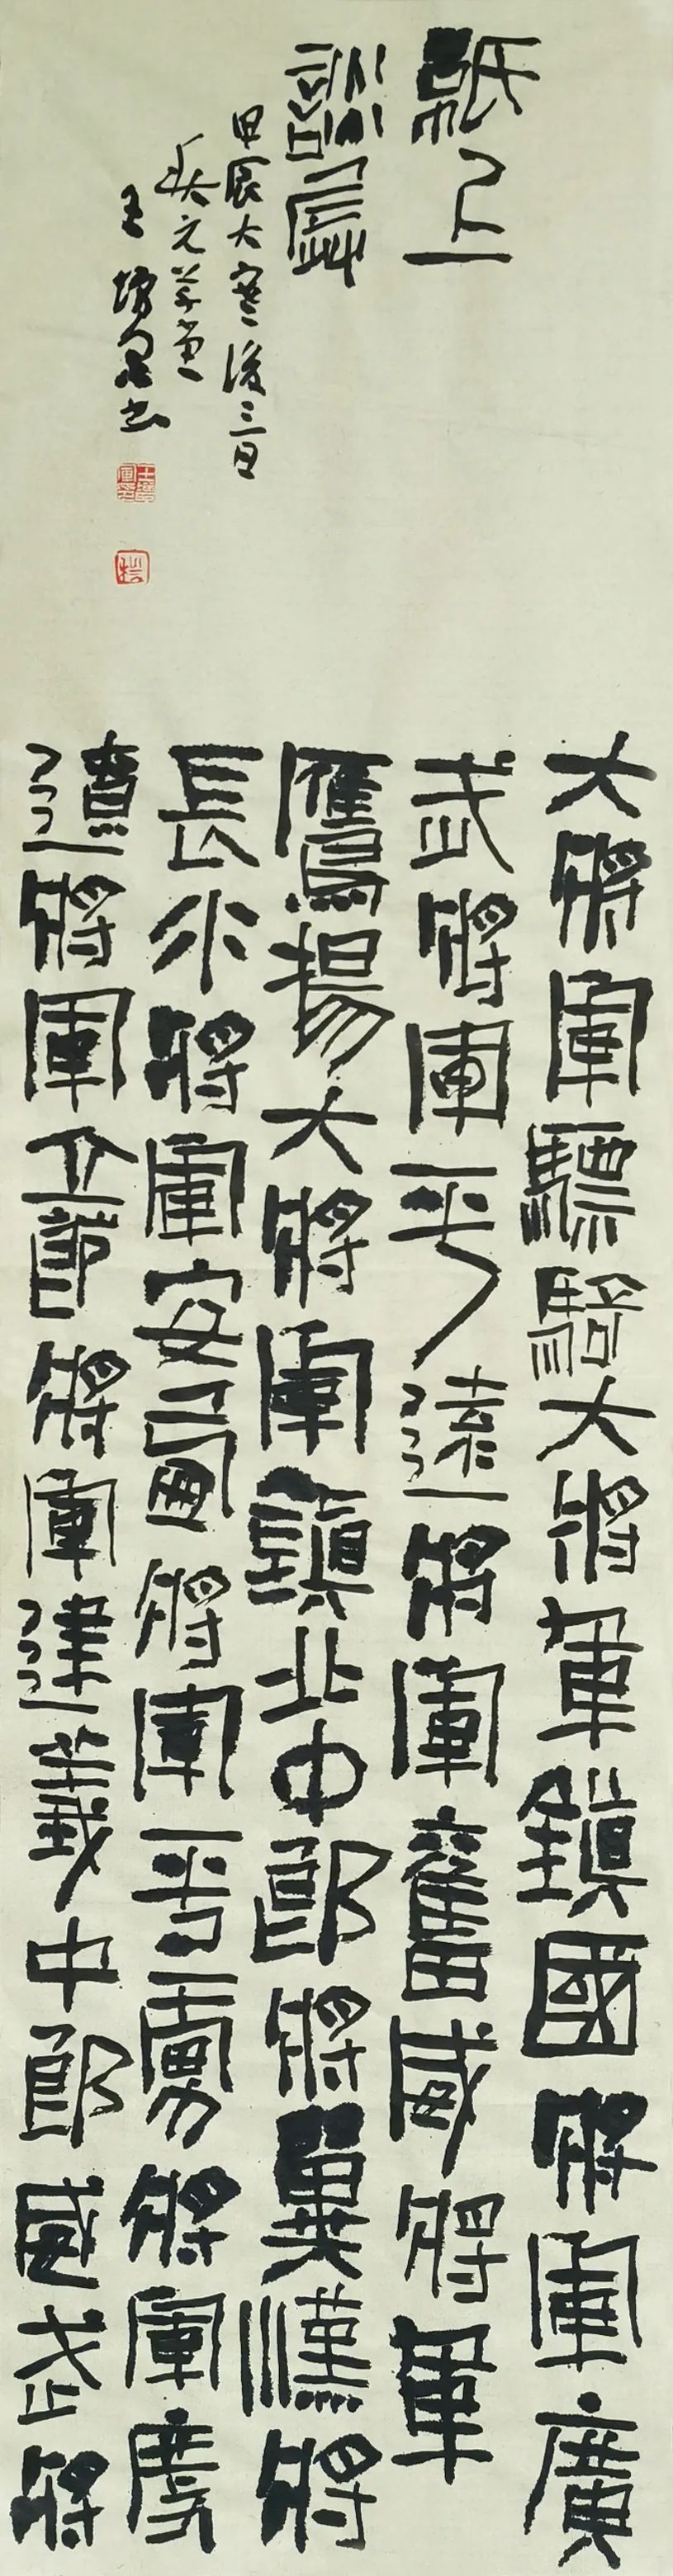 紙上
談
甲辰大寒後三日
元草堂
王增軍書
大將軍驃騎大將軍鎮國將軍廣
武將軍平遠將軍奮威將軍
鷹揚大將軍鎮北中郎將翼漢將
長水將軍安將軍平虜將軍度
遼將軍立節將軍建義中郎威武將